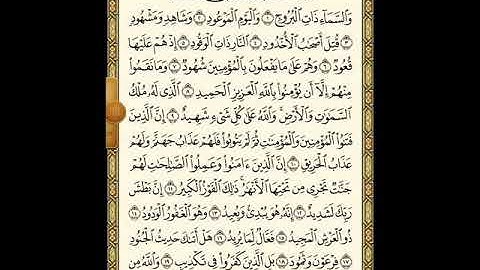 وَالسَّمَاءِ ذَاتِ الْبُرُوجِ ١ وَالْيَوْمِ الْمَوْعُودِ ٢ وَشَاهِدٍ وَمَشْهُودٍ
٣ قُتِلَ أَصْحَابُ الْأُخْدُودِ ٤ النَّارِ ذَاتِ الْوَقُودِ ٥ إِذْ هُمْ عَلَيْهَا
قُعُودٌ ٦ وَهُمْ عَلَىٰ مَا يَفْعَلُونَ بِالْمُؤْمِنِينَ شُهُودٌ ٧ وَمَا نَقَمُوا
مِنْهُمْ إِلَّا أَن يُؤْمِنُوا بِاللَّهِ الْعَزِيزِ الْحَمِيدِ ٨ الَّذِي لَهُ مُلْكُ
السَّمَاوَاتِ وَالْأَرْضِ وَاللَّهُ عَلَىٰ كُلِّ شَيْءٍ شَهِيدٌ ٩ إِنَّ الَّذِينَ
فَتَنُوا الْمُؤْمِنِينَ وَالْمُؤْمِنَاتِ ثُمَّ لَمْ يَتُوبُوا فَلَهُمْ عَذَابُ جَهَنَّمَ وَلَهُمْ
عَذَابُ الْحَرِيقِ ١٠ إِنَّ الَّذِينَ ءَامَنُوا وَعَمِلُوا الصَّالِحَاتِ لَهُمْ
جَنَّاتٌ تَجْرِي مِن تَحْتِهَا الْأَنْهَارُ ذَٰلِكَ الْفَوْزُ الْكَبِيرُ ١١ إِنَّ بَطْشَ
رَبِّكَ لَشَدِيدٌ ١٢ إِنَّهُ هُوَ يُبْدِئُ وَيُعِيدُ ١٣ وَهُوَ الْغَفُورُ الْوَدُودُ ١٤
ذُو الْعَرْشِ الْمَجِيدُ ١٥ فَعَّالٌ لِّمَا يُرِيدُ ١٦ هَلْ أَتَاكَ حَدِيثُ الْجُنُودِ
١٧ فِرْعَوْنَ وَثَمُودَ ١٨ بَلِ الَّذِينَ كَفَرُوا فِي تَكْذِيبٍ ١٩ وَاللَّهُ مِن